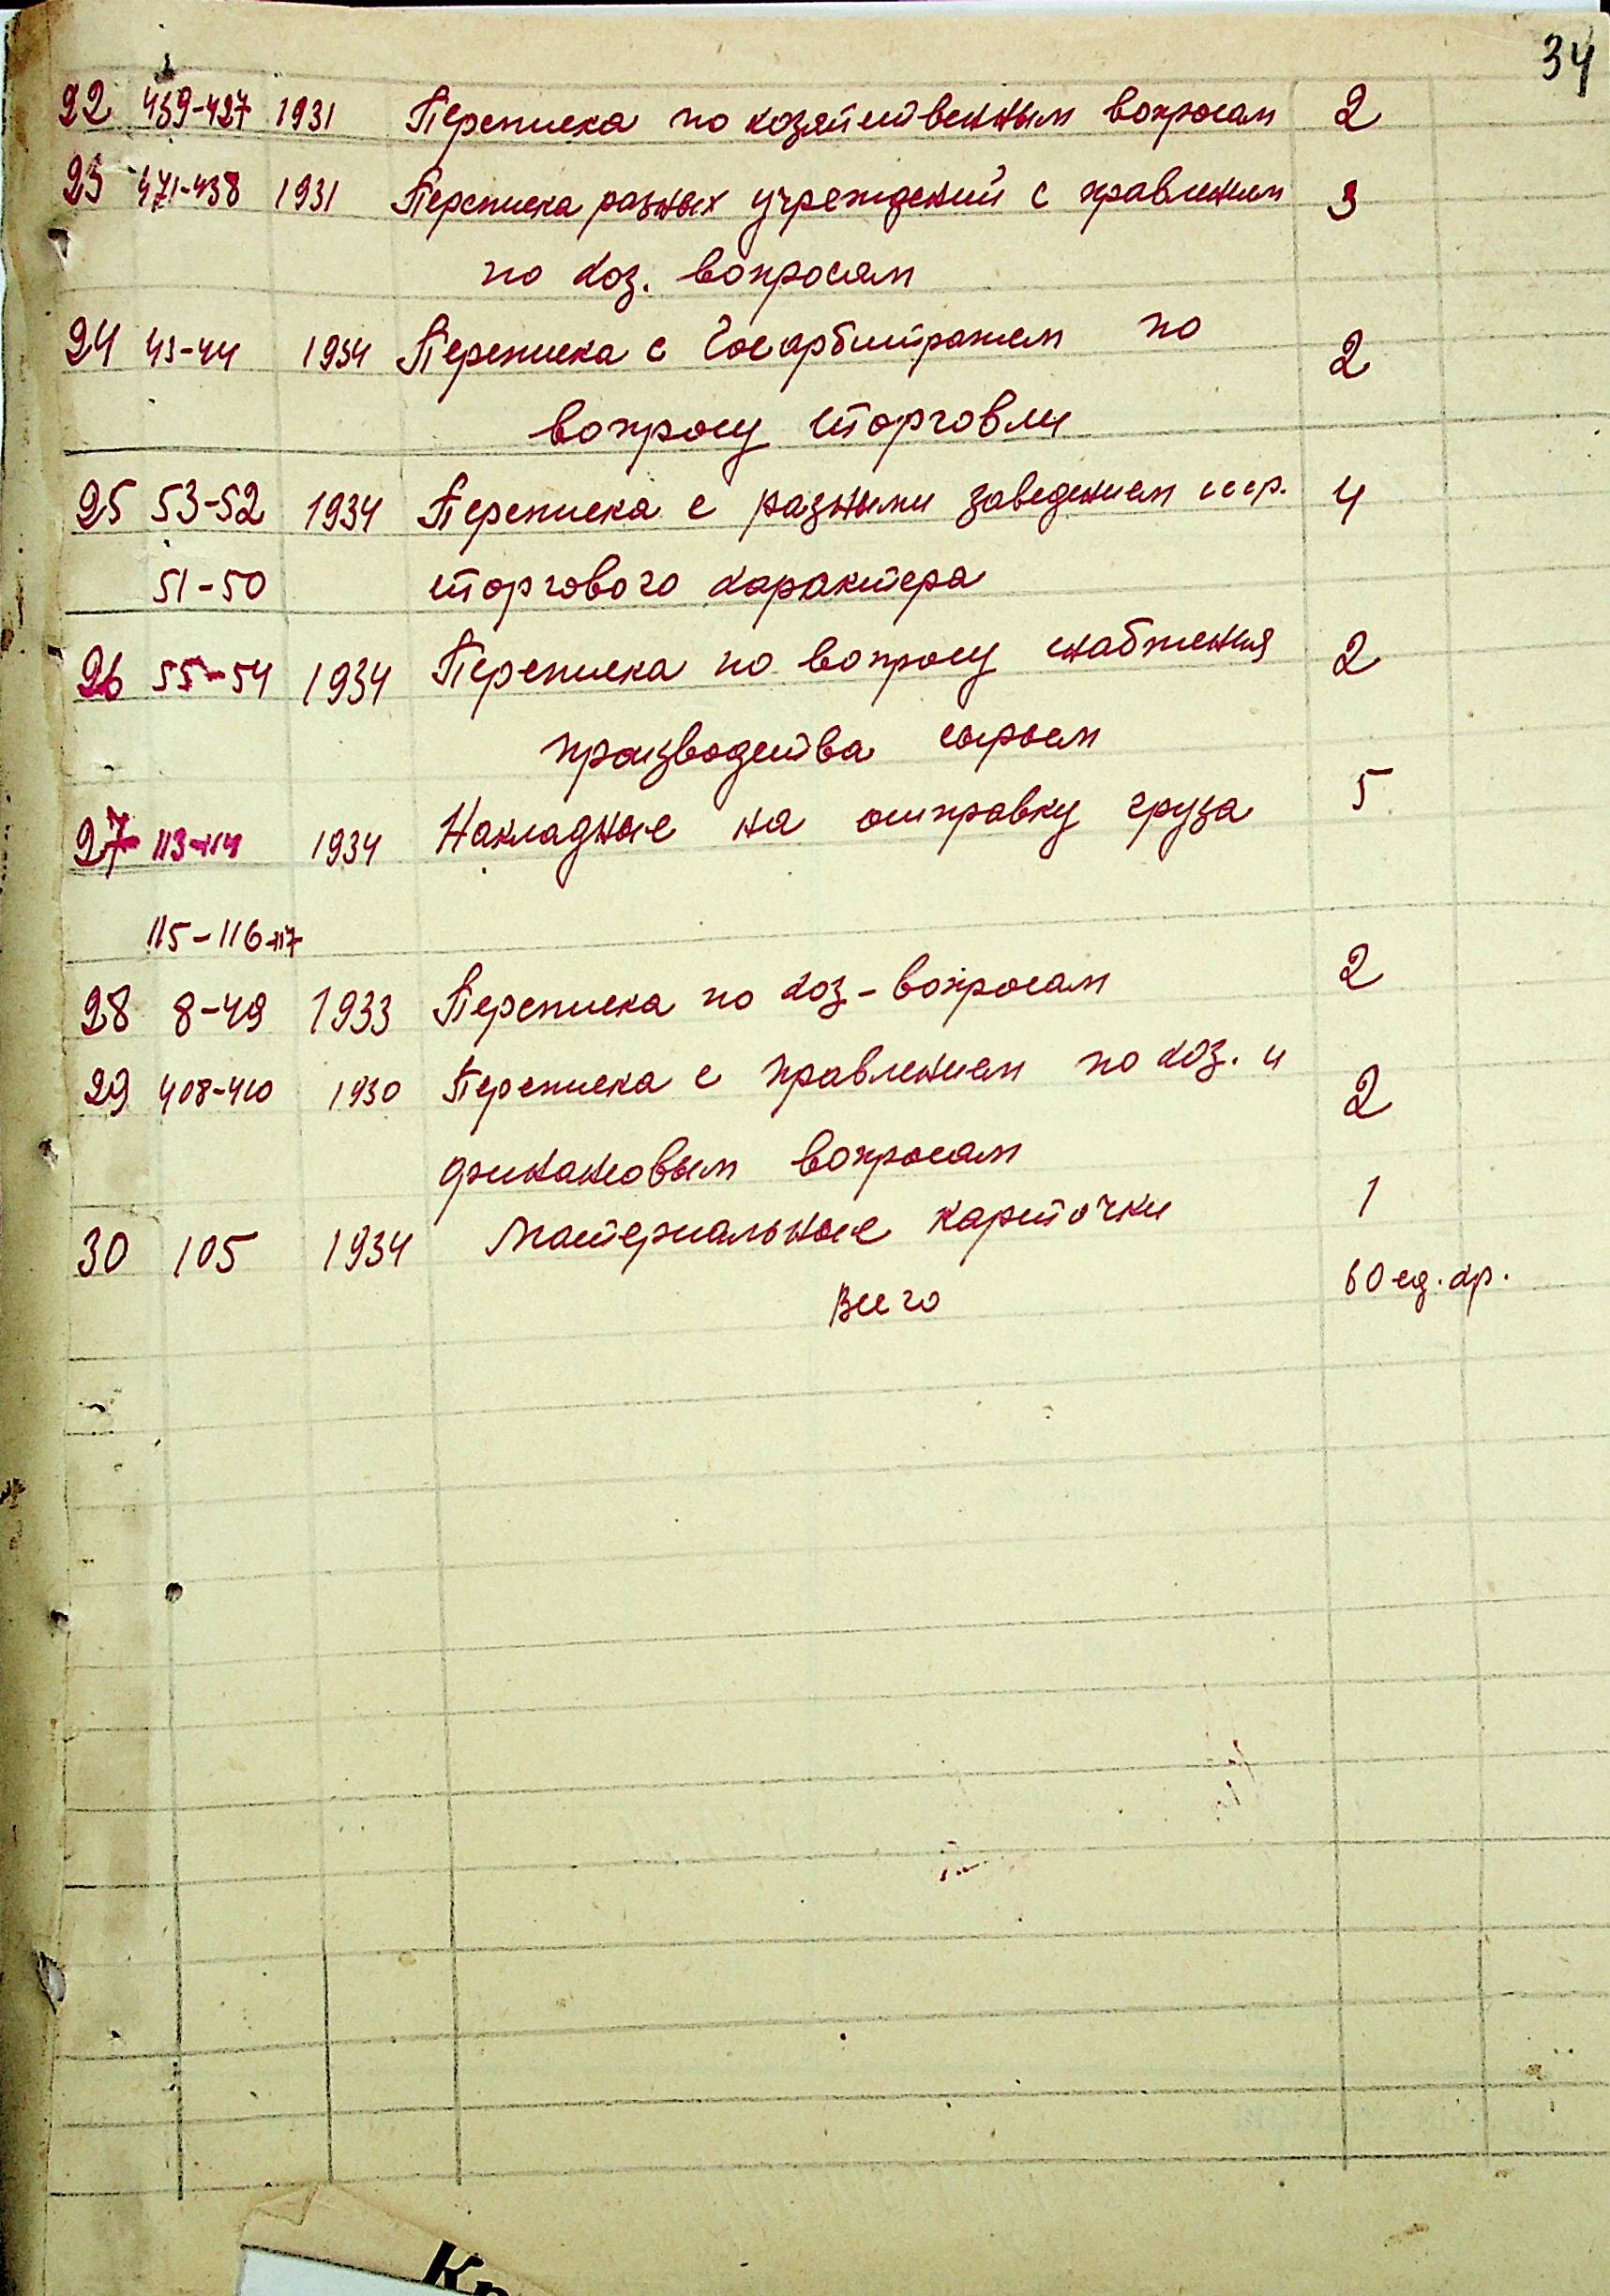 34
22 459-427 1931 Переписка по хозяйственным вопросам 2
23 471-438 1931 Переписка разных учреждений с правлением 3
по хоз. вопросам
24 43-44 1934 Переписка с Госарбитражем по 2
вопросу торговли
25 53-52 1934 Переписка с разными заведением ссср. 4
51-50 торгового характера
26 55-54 1934 Переписка по вопросу снабжения 2
производства сырьем
27 113-114 1934 Накладные на отправку груза 5
115-116-117
28 8-49 1933 Переписка по хоз-вопросам 2
29 408-410 1930 Переписка с правлением по хоз. и 2
финансовым вопросам
30 105 1934 Материальные карточки 1
Всего 60 ед. хр.
Кр